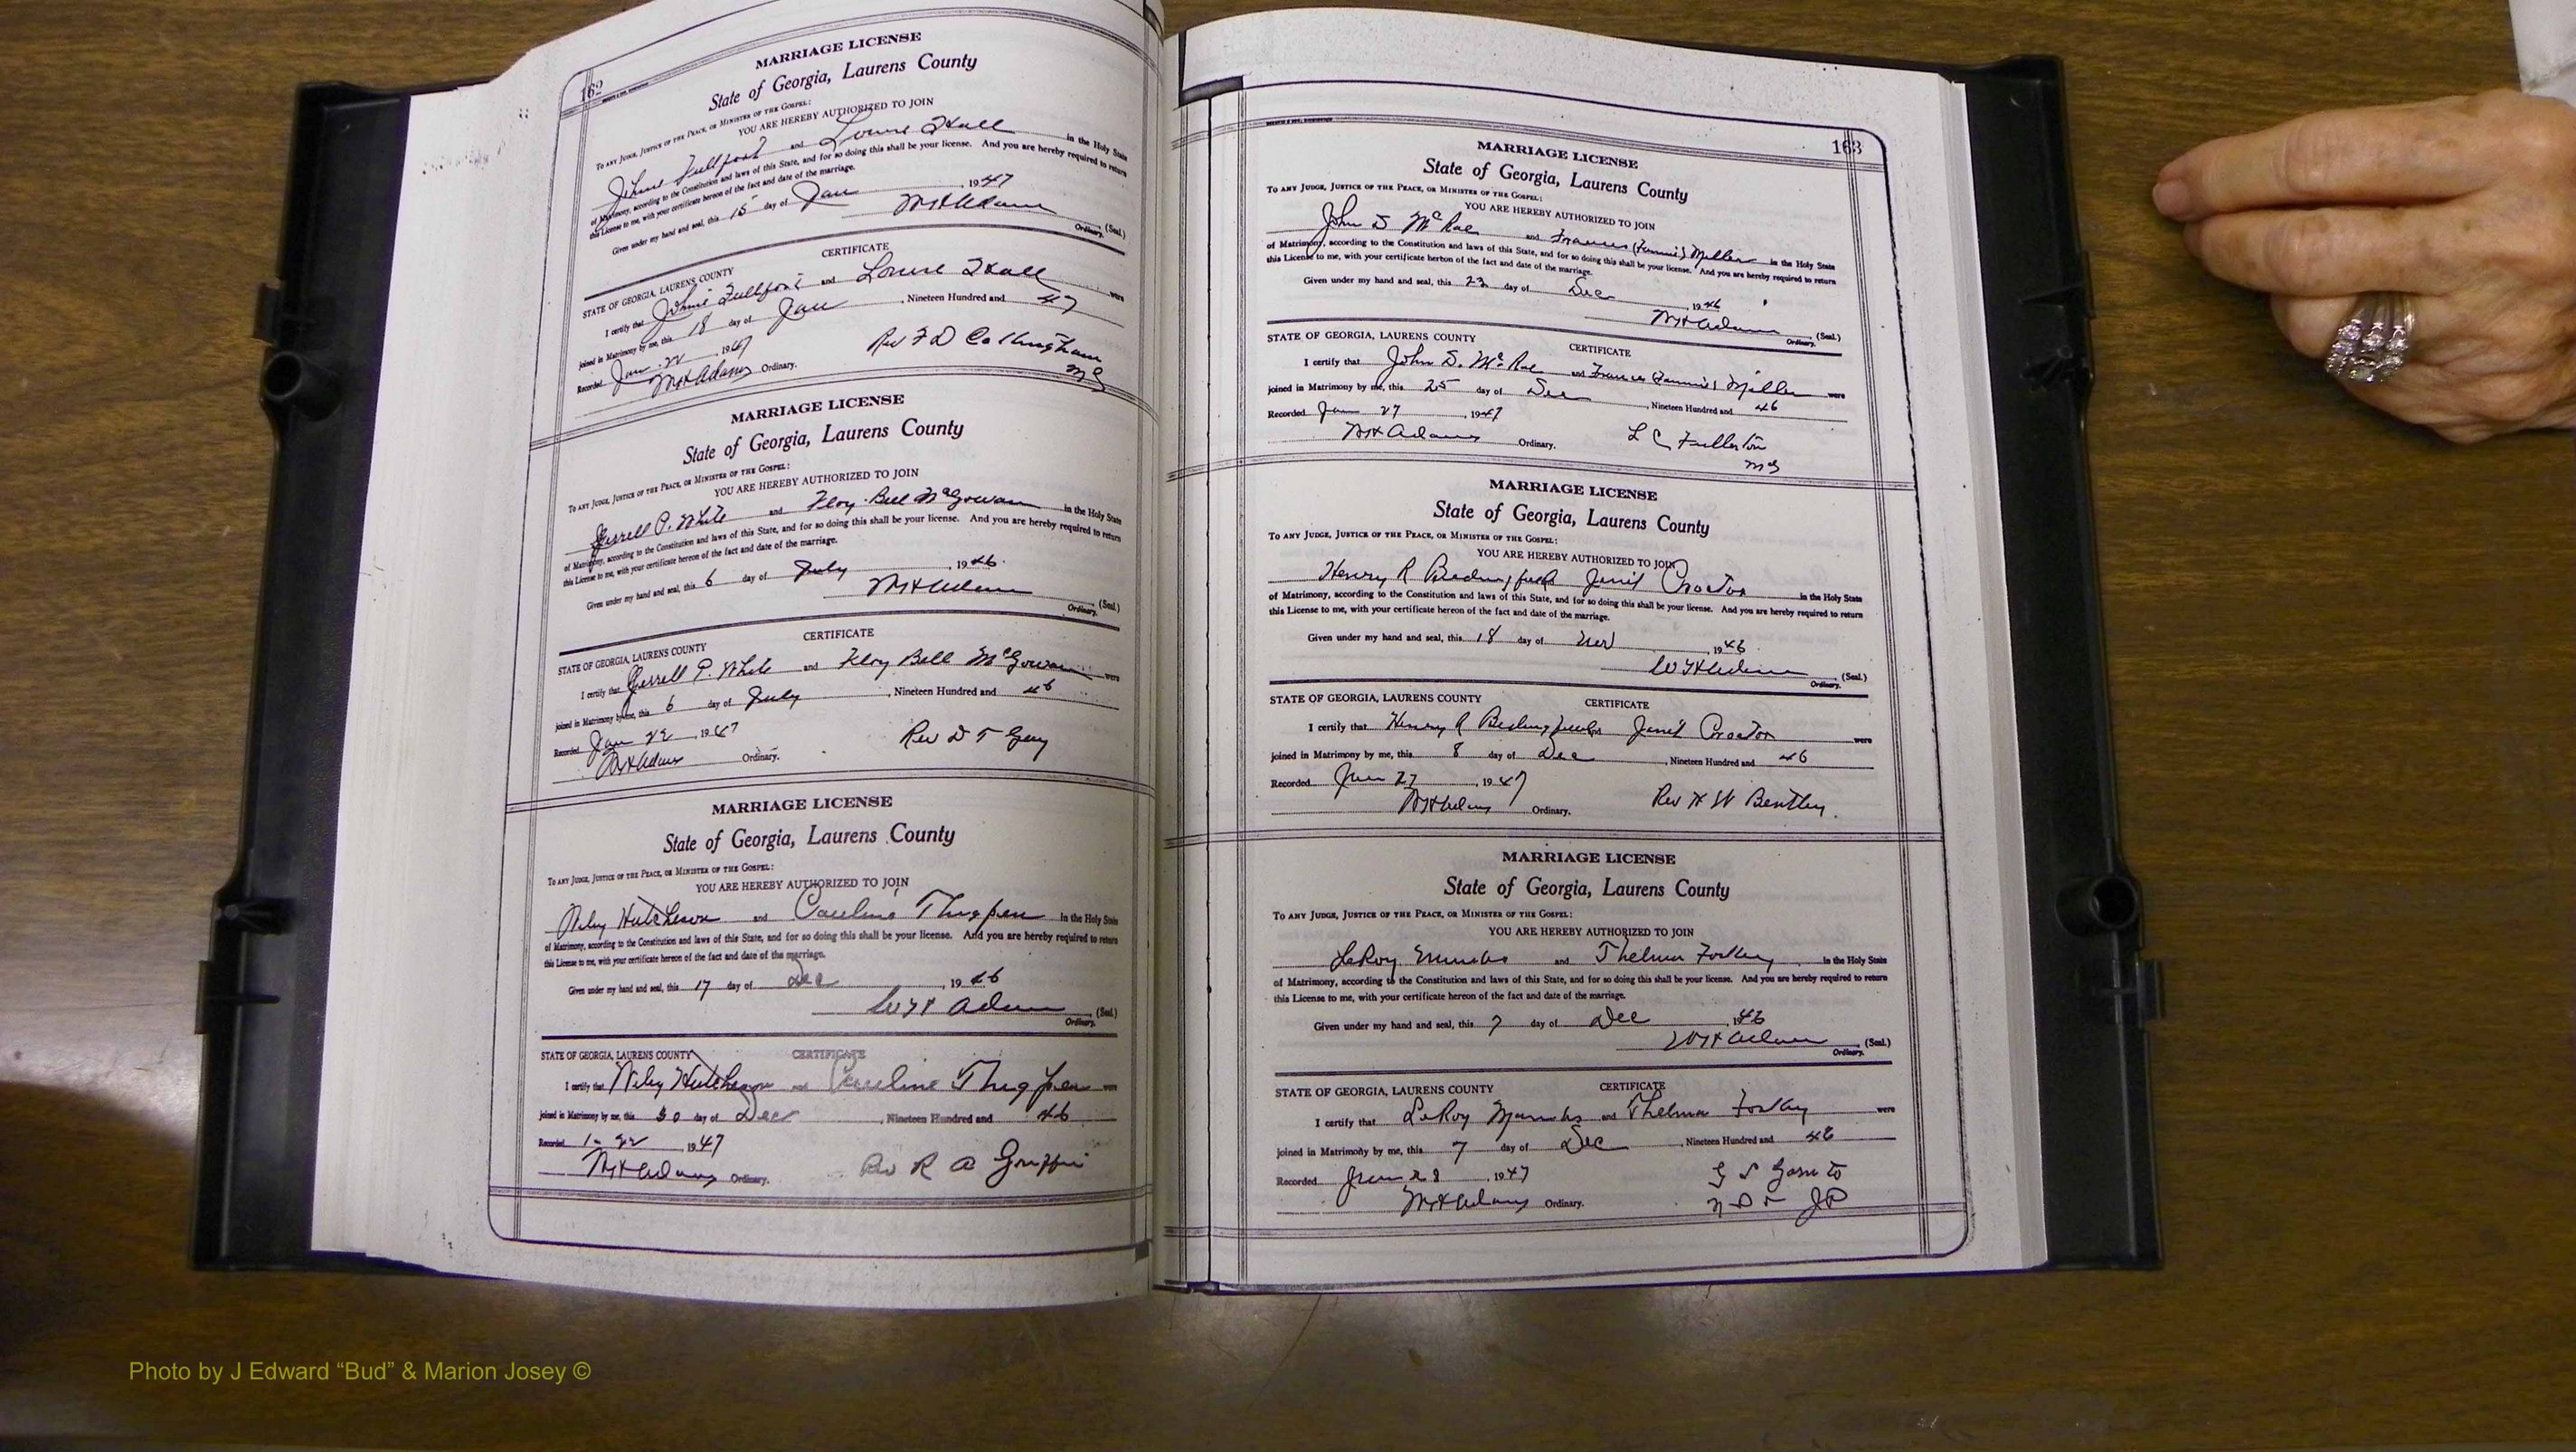 162
MARRIAGE LICENSE
State of Georgia, Laurens County
TO ANY JUDGE, JUSTICE OF THE PEACE, OR MINISTER OF THE GOSPEL:
YOU ARE HEREBY AUTHORIZED TO JOIN
Johnie Fullford and Louise Hall in the Holy State
of Matrimony, according to the Constitution and laws of this State, and for so doing this shall be your license. And you are hereby required to return
this License to me, with your certificate hereon of the fact and date of the marriage.
Given under my hand and seal, this 15 day of Jan 1947
WH Adams (Seal.)
Ordinary.
CERTIFICATE
STATE OF GEORGIA, LAURENS COUNTY
I certify that Johnie Fullford and Louise Hall were
joined in Matrimony by me, this 18 day of Jan, Nineteen Hundred and 47
Recorded Jan 22, 1947 Rev F D
WH Adams Ordinary. MG
MARRIAGE LICENSE
State of Georgia, Laurens County
TO ANY JUDGE, JUSTICE OF THE PEACE, OR MINISTER OF THE GOSPEL:
YOU ARE HEREBY AUTHORIZED TO JOIN
Jerrell P. White and Floy Bell McGowan in the Holy State
of Matrimony, according to the Constitution and laws of this State, and for so doing this shall be your license. And you are hereby required to return
this License to me, with your certificate hereon of the fact and date of the marriage.
Given under my hand and seal, this 6 day of July, 1946
WH Adams (Seal.)
Ordinary.
CERTIFICATE
STATE OF GEORGIA, LAURENS COUNTY
I certify that Jerrell P. White and Floy Bell McGowan were
joined in Matrimony by me, this 6 day of July, Nineteen Hundred and 46
Recorded Jan 22, 1947 Rev D T
WH Adams Ordinary.
MARRIAGE LICENSE
State of Georgia, Laurens County
TO ANY JUDGE, JUSTICE OF THE PEACE, OR MINISTER OF THE GOSPEL:
YOU ARE HEREBY AUTHORIZED TO JOIN
Wiley Hutcheson and Pauline Thigpen in the Holy State
of Matrimony, according to the Constitution and laws of this State, and for so doing this shall be your license. And you are hereby required to return
this License to me, with your certificate hereon of the fact and date of the marriage.
Given under my hand and seal, this 17 day of Dec, 1946
WH Adams (Seal.)
Ordinary.
STATE OF GEORGIA, LAURENS COUNTY CERTIFICATE
I certify that Wiley Hutcheson and Pauline Thigpen were
joined in Matrimony by me, this 30 day of Dec, Nineteen Hundred and 46
Recorded 1-22, 1947
WH Adams Ordinary. Rev R A Griffin
163
MARRIAGE LICENSE
State of Georgia, Laurens County
TO ANY JUDGE, JUSTICE OF THE PEACE, OR MINISTER OF THE GOSPEL:
YOU ARE HEREBY AUTHORIZED TO JOIN
John D McRae and Frances (Fannie) Miller in the Holy State
of Matrimony, according to the Constitution and laws of this State, and for so doing this shall be your license. And you are hereby required to return
this License to me, with your certificate hereon of the fact and date of the marriage.
Given under my hand and seal, this 23 day of Dec, 1946
WH Adams (Seal.)
Ordinary.
STATE OF GEORGIA, LAURENS COUNTY CERTIFICATE
I certify that John D. McRae and Frances (Fannie) Miller were
joined in Matrimony by me, this 25 day of Dec, Nineteen Hundred and 46
Recorded Jan 27, 1947
WH Adams Ordinary. L C Fullerton
MG
MARRIAGE LICENSE
State of Georgia, Laurens County
TO ANY JUDGE, JUSTICE OF THE PEACE, OR MINISTER OF THE GOSPEL:
YOU ARE HEREBY AUTHORIZED TO JOIN
Henry R Bedingfield Janit Proctor in the Holy State
of Matrimony, according to the Constitution and laws of this State, and for so doing this shall be your license. And you are hereby required to return
this License to me, with your certificate hereon of the fact and date of the marriage.
Given under my hand and seal, this 18 day of Nov, 1946
WH Adams (Seal.)
Ordinary.
STATE OF GEORGIA, LAURENS COUNTY CERTIFICATE
I certify that Henry R Bedingfield Janit Proctor were
joined in Matrimony by me, this 8 day of Dec, Nineteen Hundred and 46
Recorded Jan 27, 1947
WH Adams Ordinary. Rev H W Bentley.
MARRIAGE LICENSE
State of Georgia, Laurens County
TO ANY JUDGE, JUSTICE OF THE PEACE, OR MINISTER OF THE GOSPEL:
YOU ARE HEREBY AUTHORIZED TO JOIN
LeRoy and Thelma in the Holy State
of Matrimony, according to the Constitution and laws of this State, and for so doing this shall be your license. And you are hereby required to return
this License to me, with your certificate hereon of the fact and date of the marriage.
Given under my hand and seal, this 7 day of Dec, 1946
WH Adams (Seal.)
Ordinary.
STATE OF GEORGIA, LAURENS COUNTY CERTIFICATE
I certify that LeRoy and Thelma were
joined in Matrimony by me, this 7 day of Dec, Nineteen Hundred and 46
Recorded Jan 28, 1947
WH Adams Ordinary. JP
Photo by J Edward “Bud” & Marion Josey ©